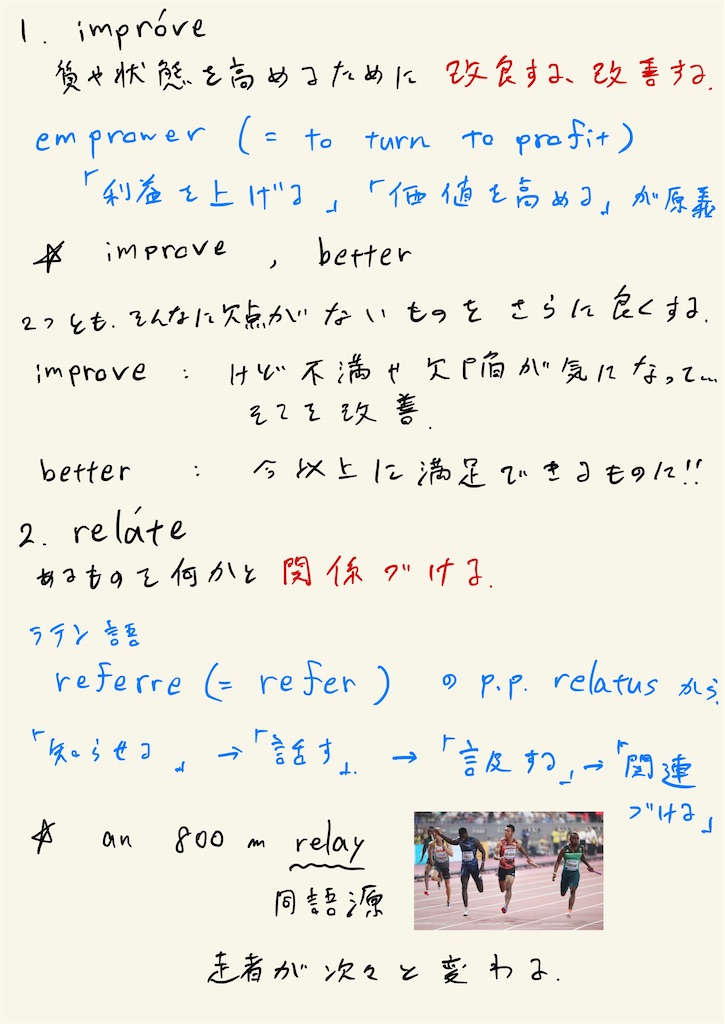 1. impróve
質や状態を高めるために 改良する、改善する.
emprower (= to turn to profit)
「利益を上げる」「価値を高める」が原義
☆ improve , better
2つとも、そんなに欠点がないものを さらに良くする.
improve : けど不満や欠陥が気になって...
そこを改善.
better : 今以上に満足できるものに!!
2. reláte
あるものを何かと 関係づける.
ラテン語
referre (= refer) の p.p. relatus から.
「知らせる」→「話す」→「言及する」→「関連
づける」
☆ an 800 m relay
同語源
走者が次々と変わる.